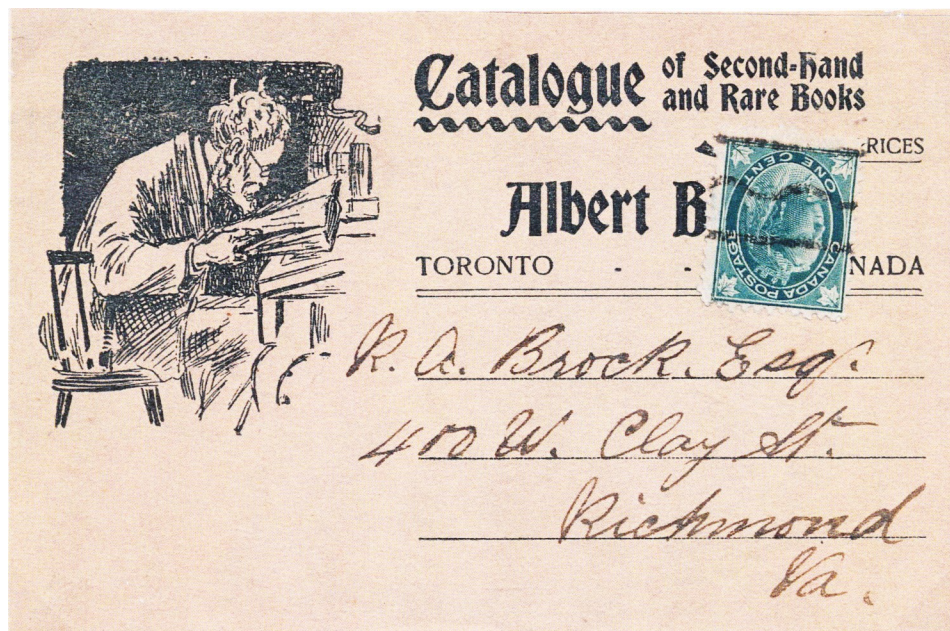 Catalogue of Second-Hand
and Rare Books
RICES
Albert B
TORONTO - - NADA
CANADA POSTAGE
ONE CENT
R. A. Brock. Esq.
400 W. Clay St.
Richmond
Va.